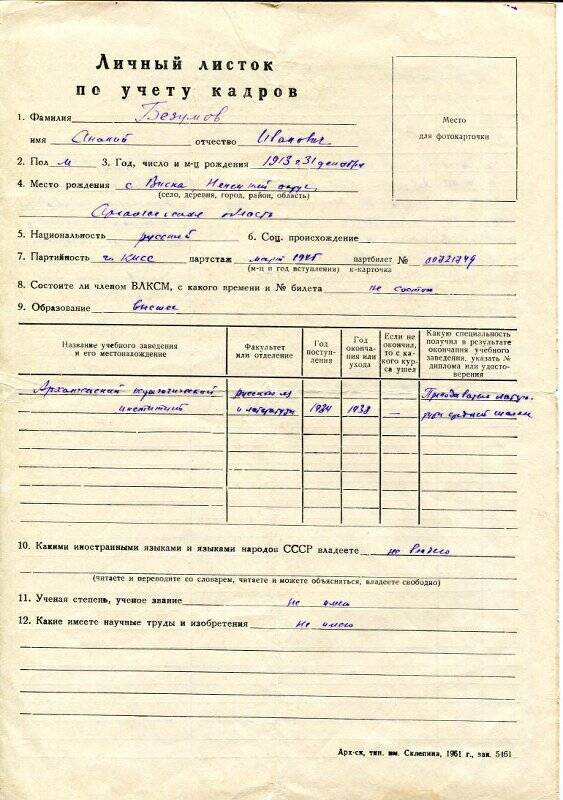 Личный листок
по учету кадров
Место
для фотокарточки
1. Фамилия Безумов
имя Ананий отчество Иванович
2. Пол м 3. Год, число и м-ц рождения 1913 г. 31 декабря
4. Место рождения с. Виска Ненецкий округ,
(село, деревня, город, район, область)
Архангельская область
5. Национальность русский 6. Соц. происхождение
7. Партийность чл. КПСС партстаж март 1945 партбилет № 00721749
(м-ц и год вступления) к-карточка
8. Состоите ли членом ВЛКСМ, с какого времени и № билета не состою
9. Образование высшее
Название учебного заведения и его местонахождение
Факультет или отделение
Год поступления
Год окончания или ухода
Если не окончил, то с какого курса ушел
Какую специальность получил в результате окончания учебного заведения, указать № диплома или удостоверения
Архангельский педагогический русского яз. Преподаватель литера-
институт и литературы 1934 1938 — туры средней школы
10. Какими иностранными языками и языками народов СССР владеете не владею
(читаете и переводите со словарем, читаете и можете объясняться, владеете свободно)
11. Ученая степень, ученое звание не имею
12. Какие имеете научные труды и изобретения не имею
Арх-ск, тип. им. Склепина, 1961 г., зак. 5461